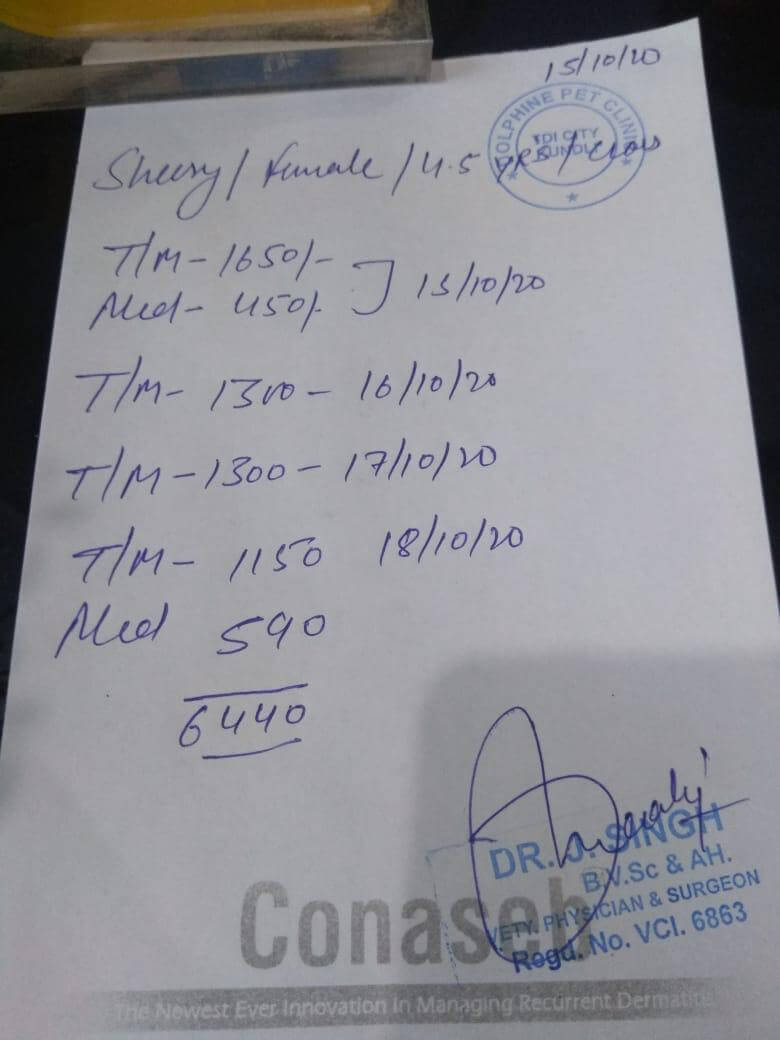 15/10/20
DOLPHINE PET CLINIC
TDI CITY
KUNDLI
Sheery / Female / 4.5 YRS /
T/M - 1650/-
Med - 450/- ] 15/10/20
T/M - 1300 - 16/10/20
T/M - 1300 - 17/10/20
T/M - 1150 18/10/20
Med 590
6440
DR. J. SINGH
B.V.Sc & AH.
VETY. PHYSICIAN & SURGEON
Regd. No. VCI. 6863
Conaseb
The Newest Ever Innovation in Managing Recurrent Dermatitis